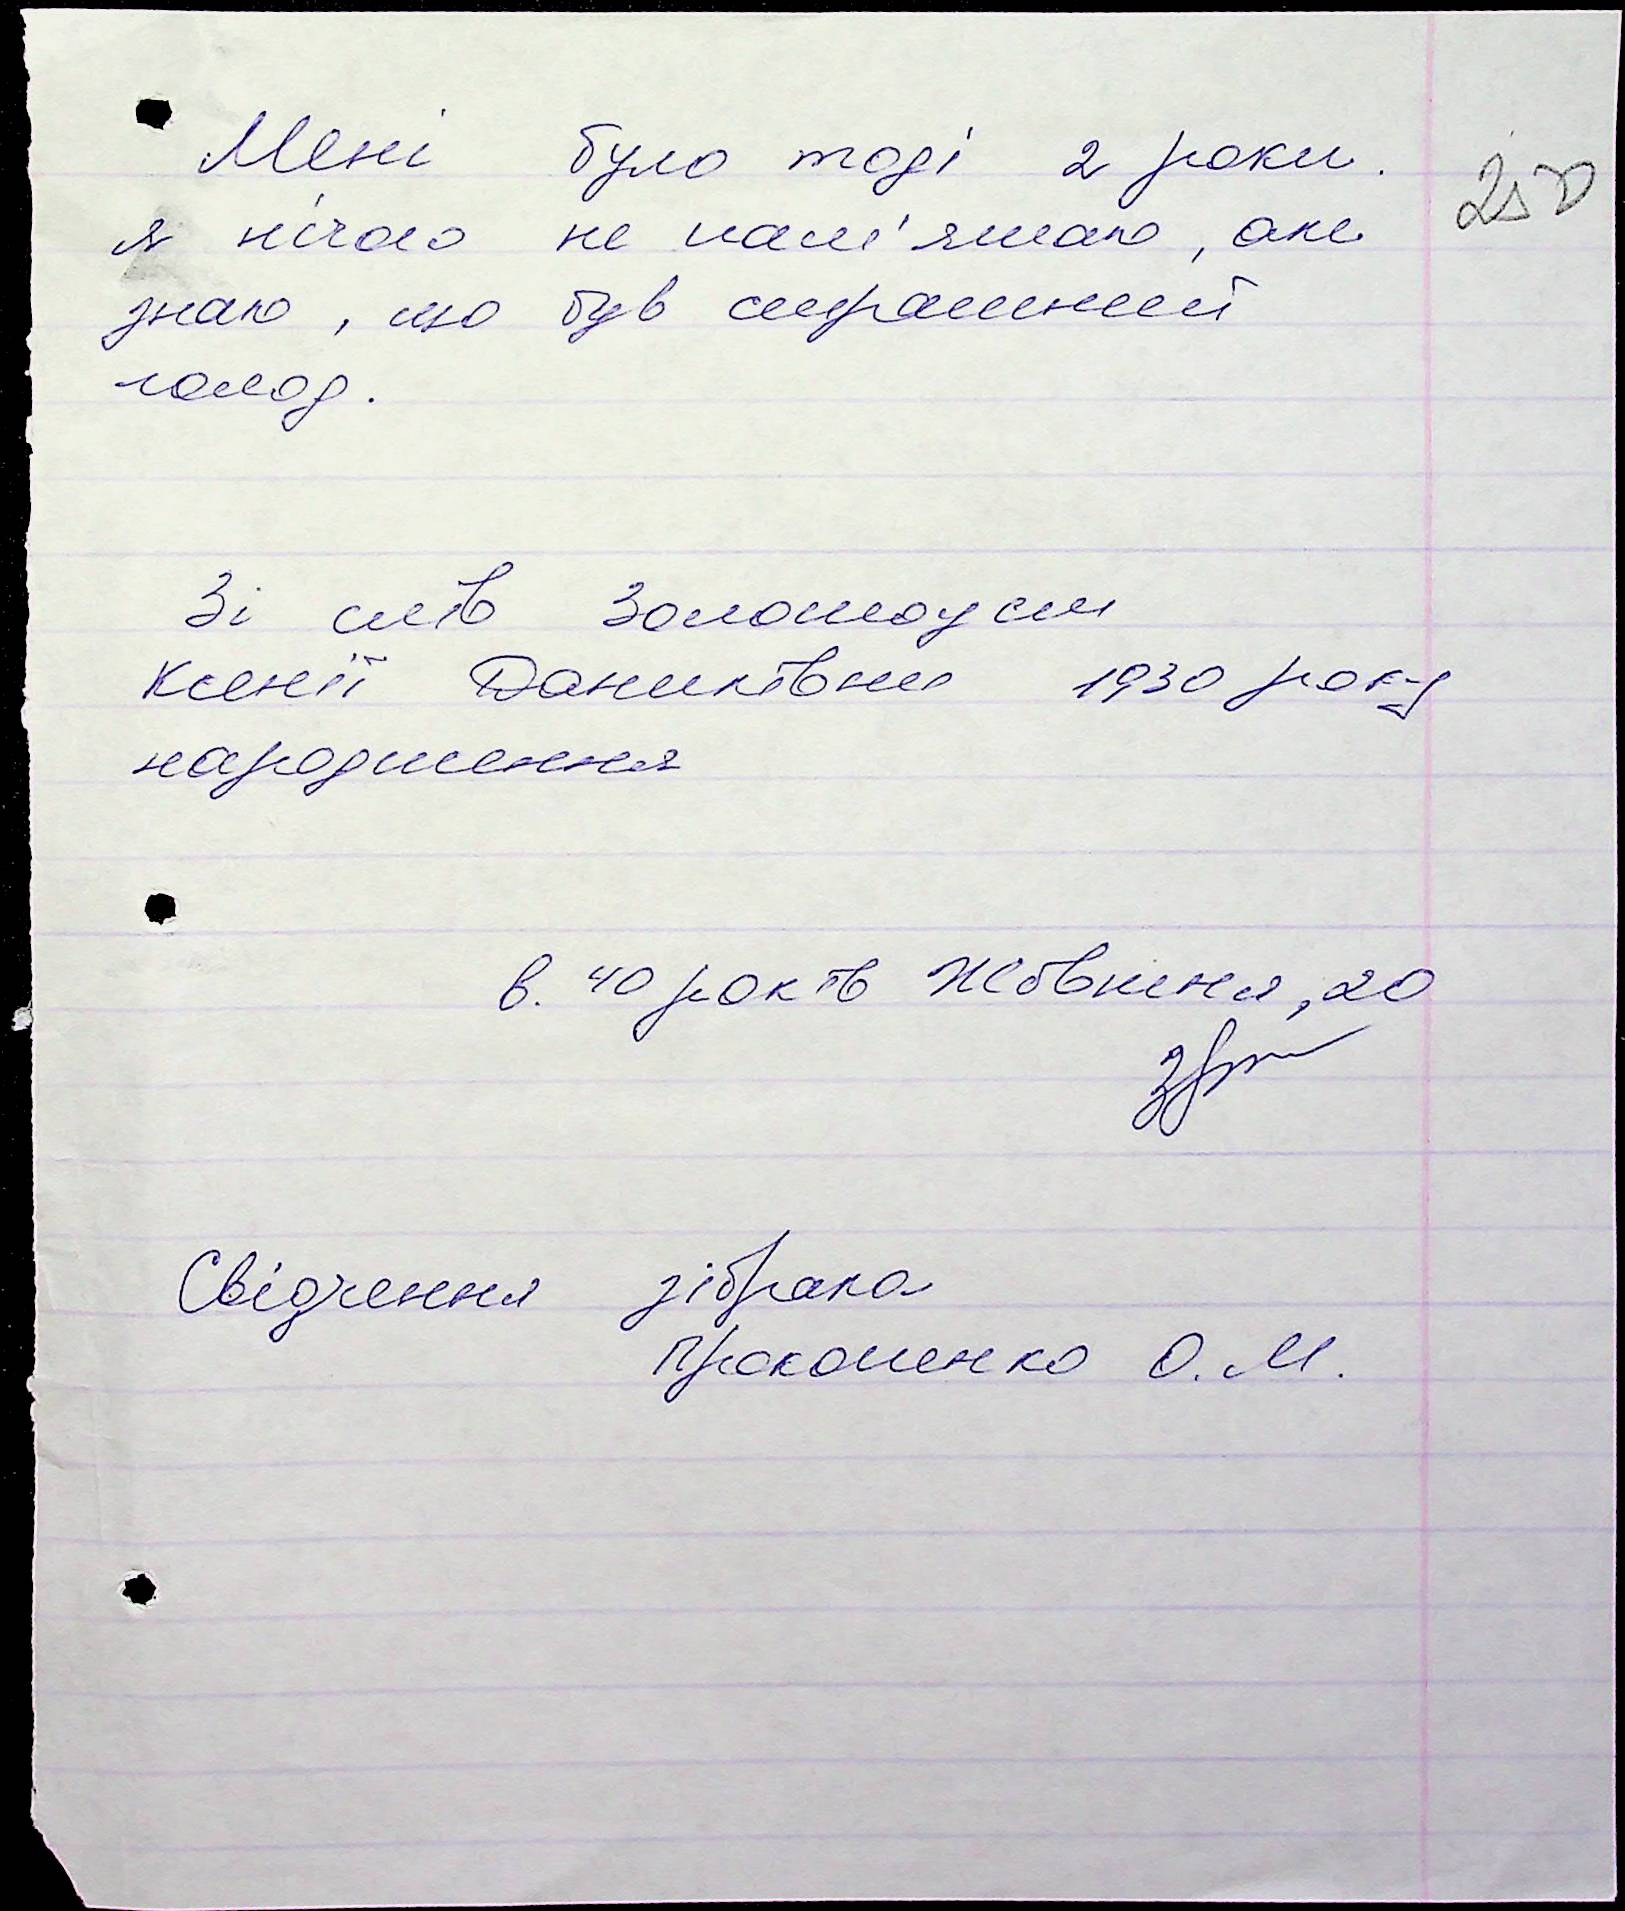 Мені було тоді 2 роки.
я нічого не пам'ятаю, але
знаю, що був страшний
голод.
250
Зі слів Золотоусти
Ксенії Данилівни 1930 року
народження
в. 40 років Жовтня, 20
Свідчення зібрала
Прокопенко О.М.